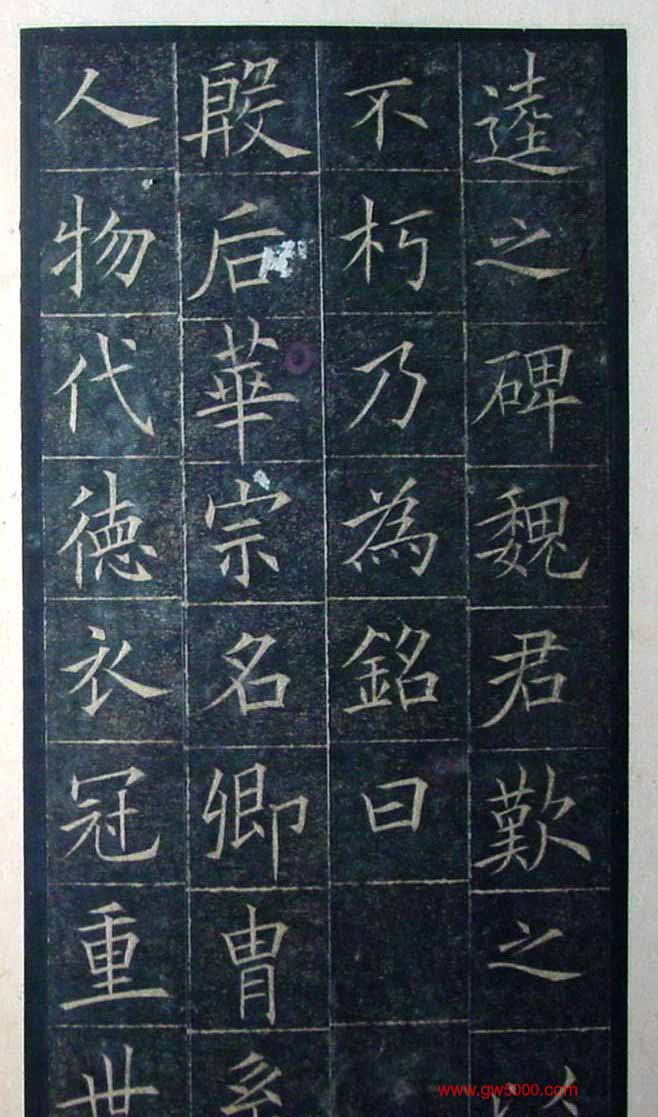 逵之碑魏君歎之
不朽乃為銘曰
殷后華宗名卿胄系
人物代德衣冠重世
www.gw5000.com